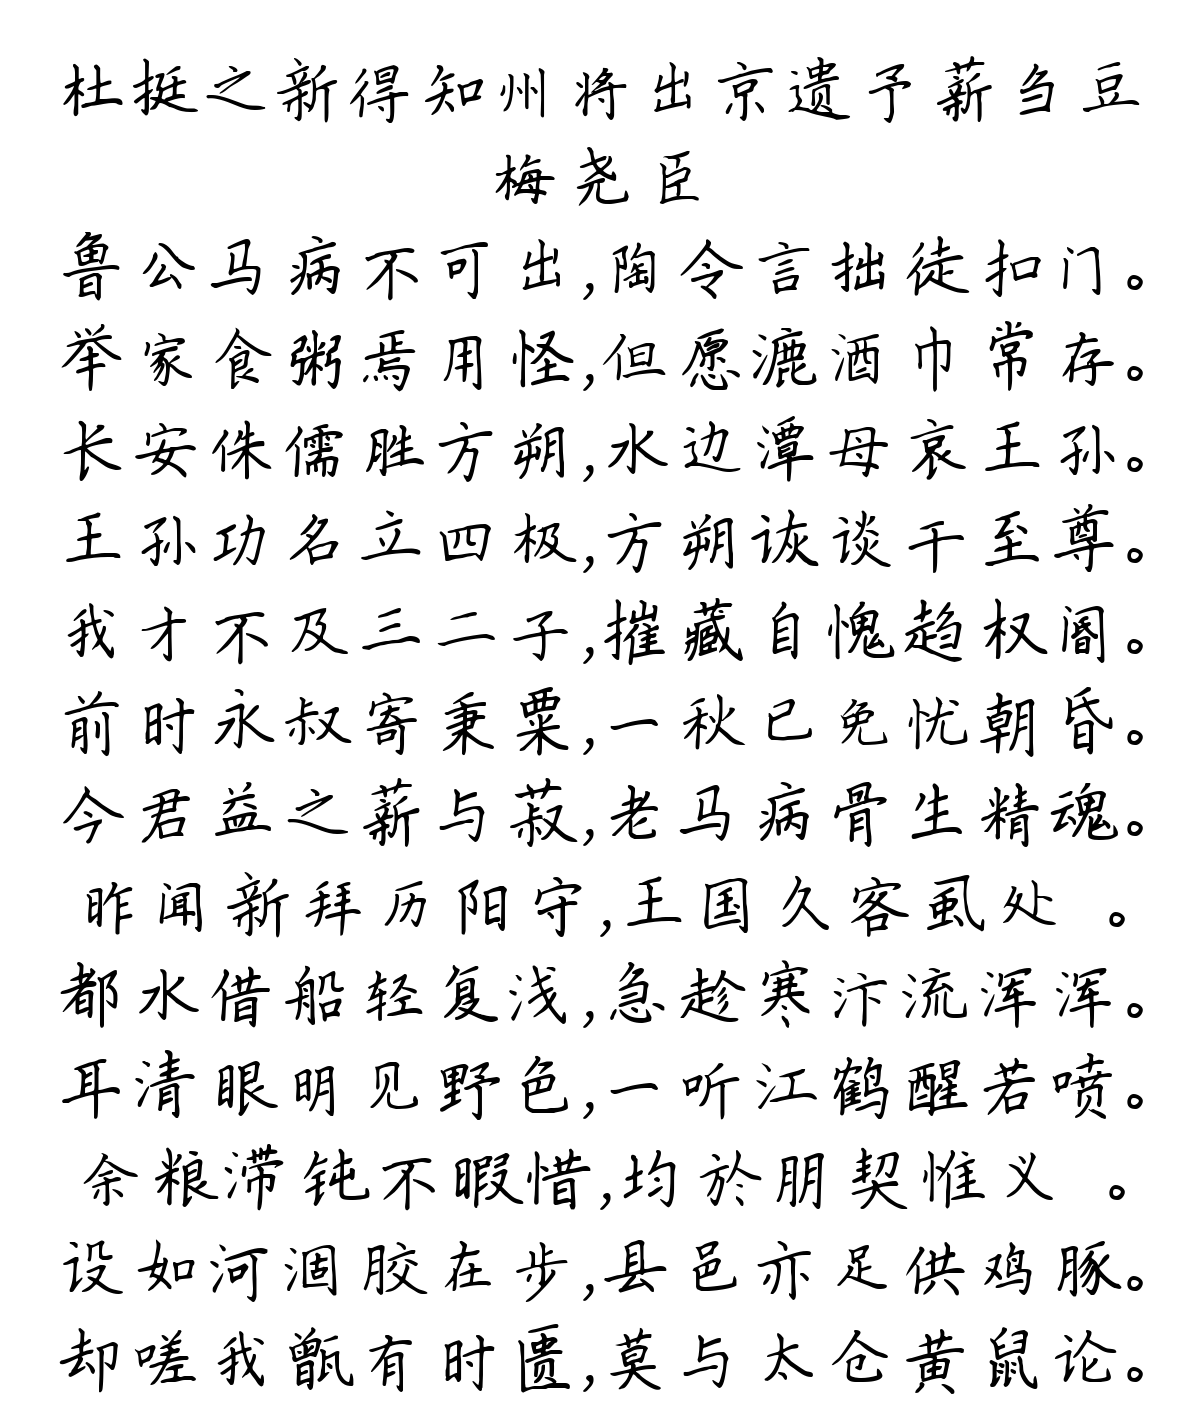 杜挺之新得知州将出京遗予薪刍豆
梅尧臣
鲁公马病不可出,陶令言拙徒扣门。
举家食粥焉用怪,但愿漉酒巾常存。
长安侏儒胜方朔,水边潭母哀王孙。
王孙功名立四极,方朔诙谈干至尊。
我才不及三二子,摧藏自愧趋权阍。
前时永叔寄秉粟,一秋已免忧朝昏。
今君益之薪与菽,老马病骨生精魂。
昨闻新拜历阳守,王国久客虱处 。
都水借船轻复浅,急趁寒汴流浑浑。
耳清眼明见野色,一听江鹤醒若喷。
余粮滞钝不暇惜,均於朋契惟义 。
设如河涸胶在步,县邑亦足供鸡豚。
却嗟我甑有时匮,莫与太仓黄鼠论。